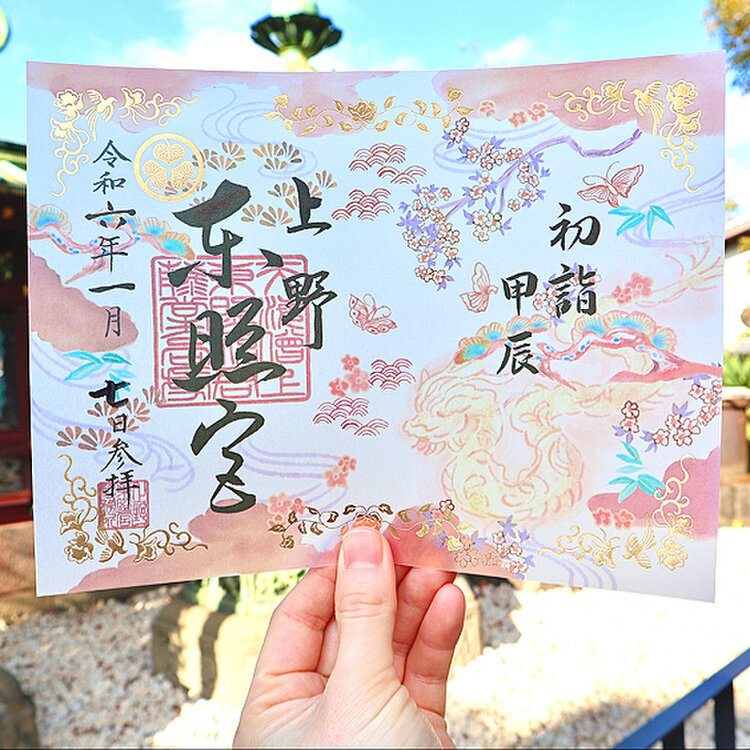 初詣
甲辰
上野
東照宮
令和六年一月
七日参拝